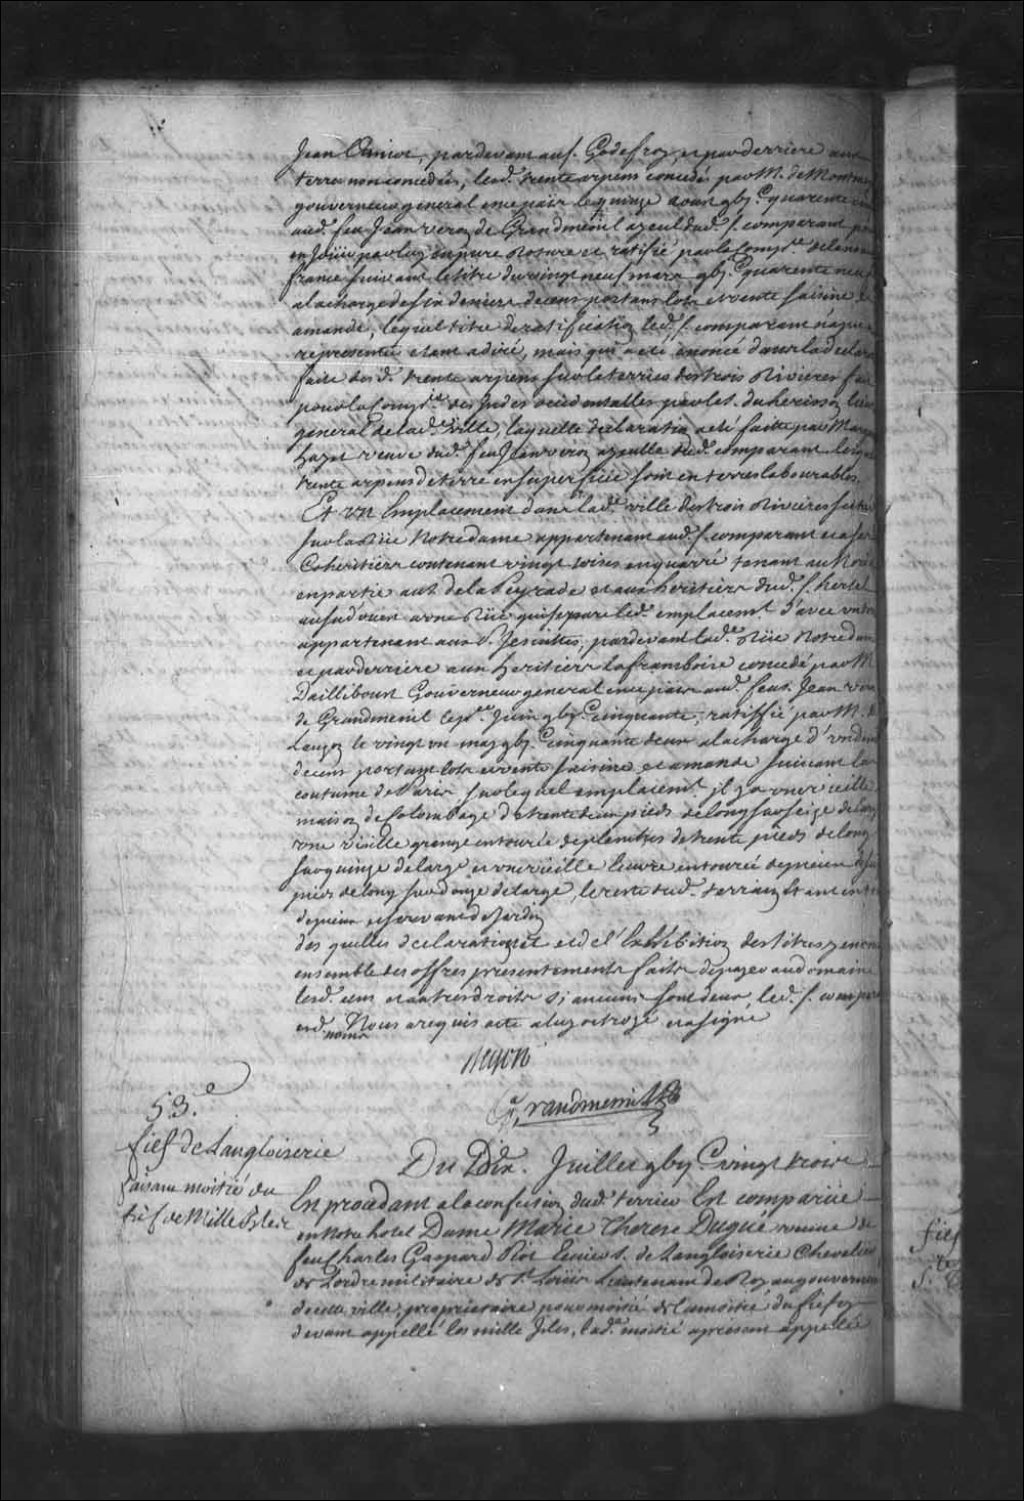 Jean Amiot, pardevant au s. Godefroy et par derriere aux
terres non concedées, lesd. trente arpens concedés par M. de Montma
gouverneur general en ce païs le quinze aoust gbj.c quarente
aud. feu Jean veron de Grandmenil ayeul dud. s. comparant pour
en Joüir par luy en pure Roture et ratifié par la Comp.ie de la nou
france suivant le titre du vingt neuf mars gbj.c quarente neuf
a la charge de six deniers de cens portant lots et vente saisine et
amande, lequel titre de ratification led. s. comparant n'a pu
representer etant adiré, mais qui a eté enoncé dans la declar
faite desd. trente arpens sur le terrier des trois Rivieres fait
pour la Comp.ie des Indes occidentalles par le s. du herisson lieu
general de lad.e ville, laquelle declaration a eté faitte par Marg
hayet veuve dud. feu Jean veron ayeulle dud. comparant lesquels
trente arpens de terre en superficie sont en terres labourables.
Et un Emplacement dans lad.e ville des trois Rivieres scitué
sur la Rüe Notre dame appartenant aud. s. comparant et a ses
Coheritiers contenant vingt toises en quarré tenant au Nord
en partie au s. de la Peyrade et aux heritiers dud. s. hertel
au sud ouest a une Rüe qui separe led. emplacem.t d'avec un
appartenant aux P. Jesuittes, pardevant lad.e Rüe Notre dame
et par derriere aux heritiers laframboise concedé par M.
Dailliboust Gouverneur general en ce païs aud. feu s. Jean veron
de Grandmenil le p.er Juin gbj.c cinquante, ratiffié par M. de
Lauzon le vingt un may gbj.c cinquante deux a la charge d'un denier
de cens portant lots et vente saisine et amande suivant la
coutume de Paris sur lequel emplacem.t il y a une vieille
maison de Colombage de trente deux pieds de long sur seize de large
une vieille grange entourée de planches de trente pieds de long
sur quinze de large et une vieille Ecurie entourée de pieux de
pieds de long sur douze de large, le reste dud. terrain etant entouré
de pieux et servant de Jardin
des quelles declarations et et de l'Exhibition des titres y enoncés
ensemble des offres presentements faits de payer au domaine
lesd. cens et autres droits si aucuns sont deus, led. s. comparant
esd. noms Nous a requis acte a luy octroyé et a signé
Begon
Grandmenil
53.e
fief de Langloiserie
faisant moitié du
fief de Mille Isles
Du Dix. Juillet gbij.C vingt trois
En procedant a la confection dud. terrier Est comparüe
en Notre hotel Dame Marie Therese Dugué veuve de
feu Charles Gaspard Piot Ecuier s. de Langloiserie Chevalier
de Lordre militaire de s.t Loüis Lieutenant de Roy au gouvernem
de cette ville, proprietaire pour moitié de la moitié du fief cy
devant appellé les mille Isles, lad.e moitié a present appellée